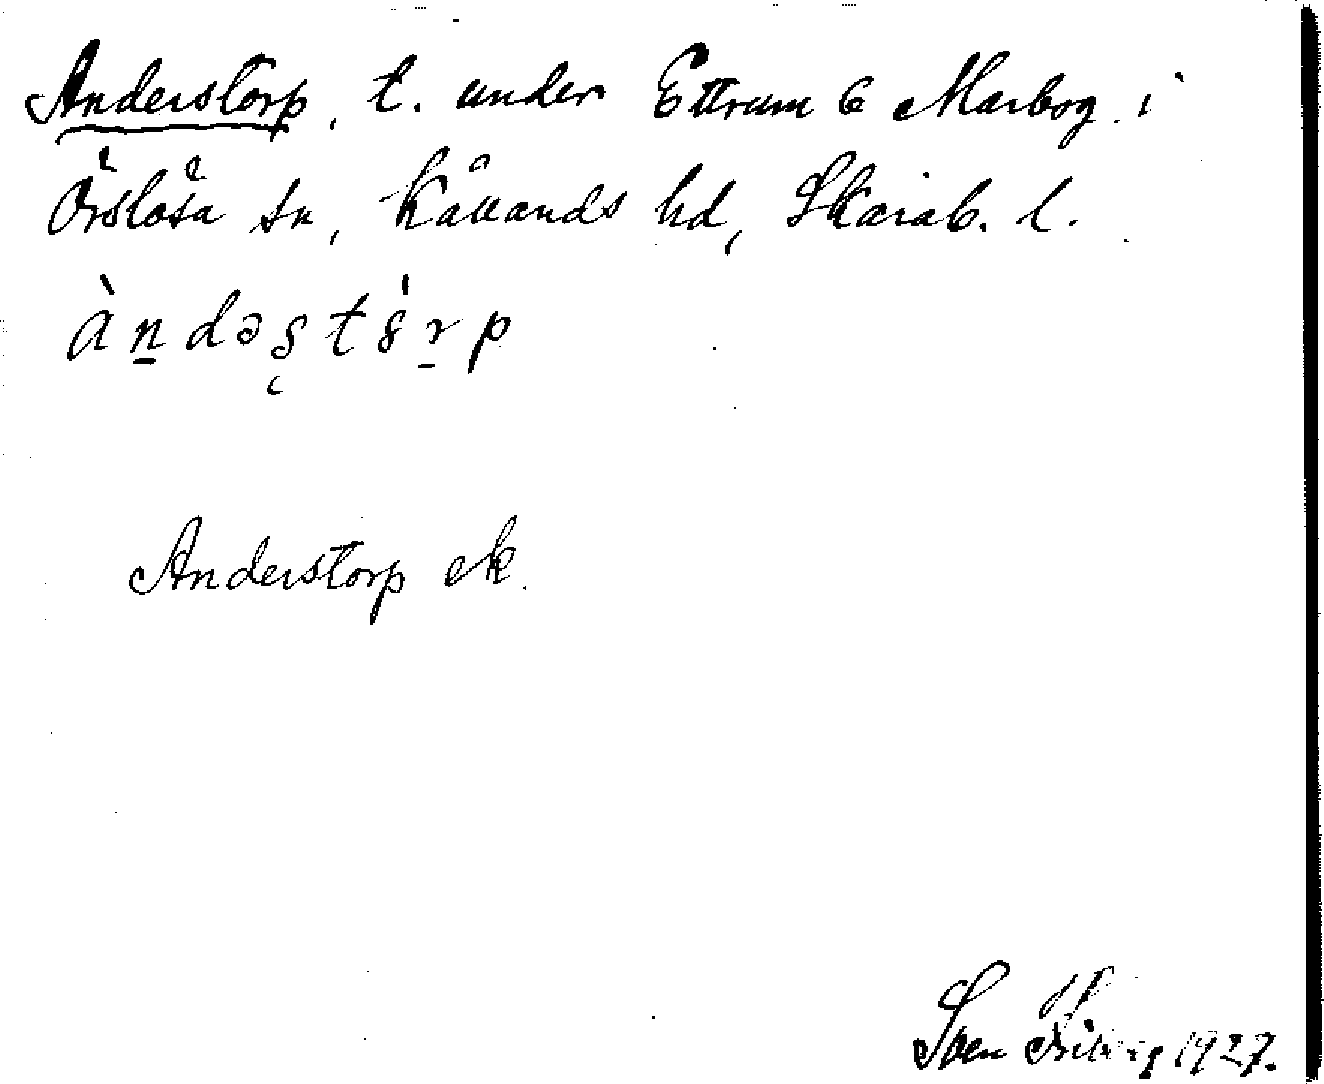 Anderstorp, t. under Ettrum 6 Marbog. i
Örslösa sn, Kållands hd, Skarab. l.
àṉdəʂtɞ́ṟp
Anderstorp ek.
Sven 1927.